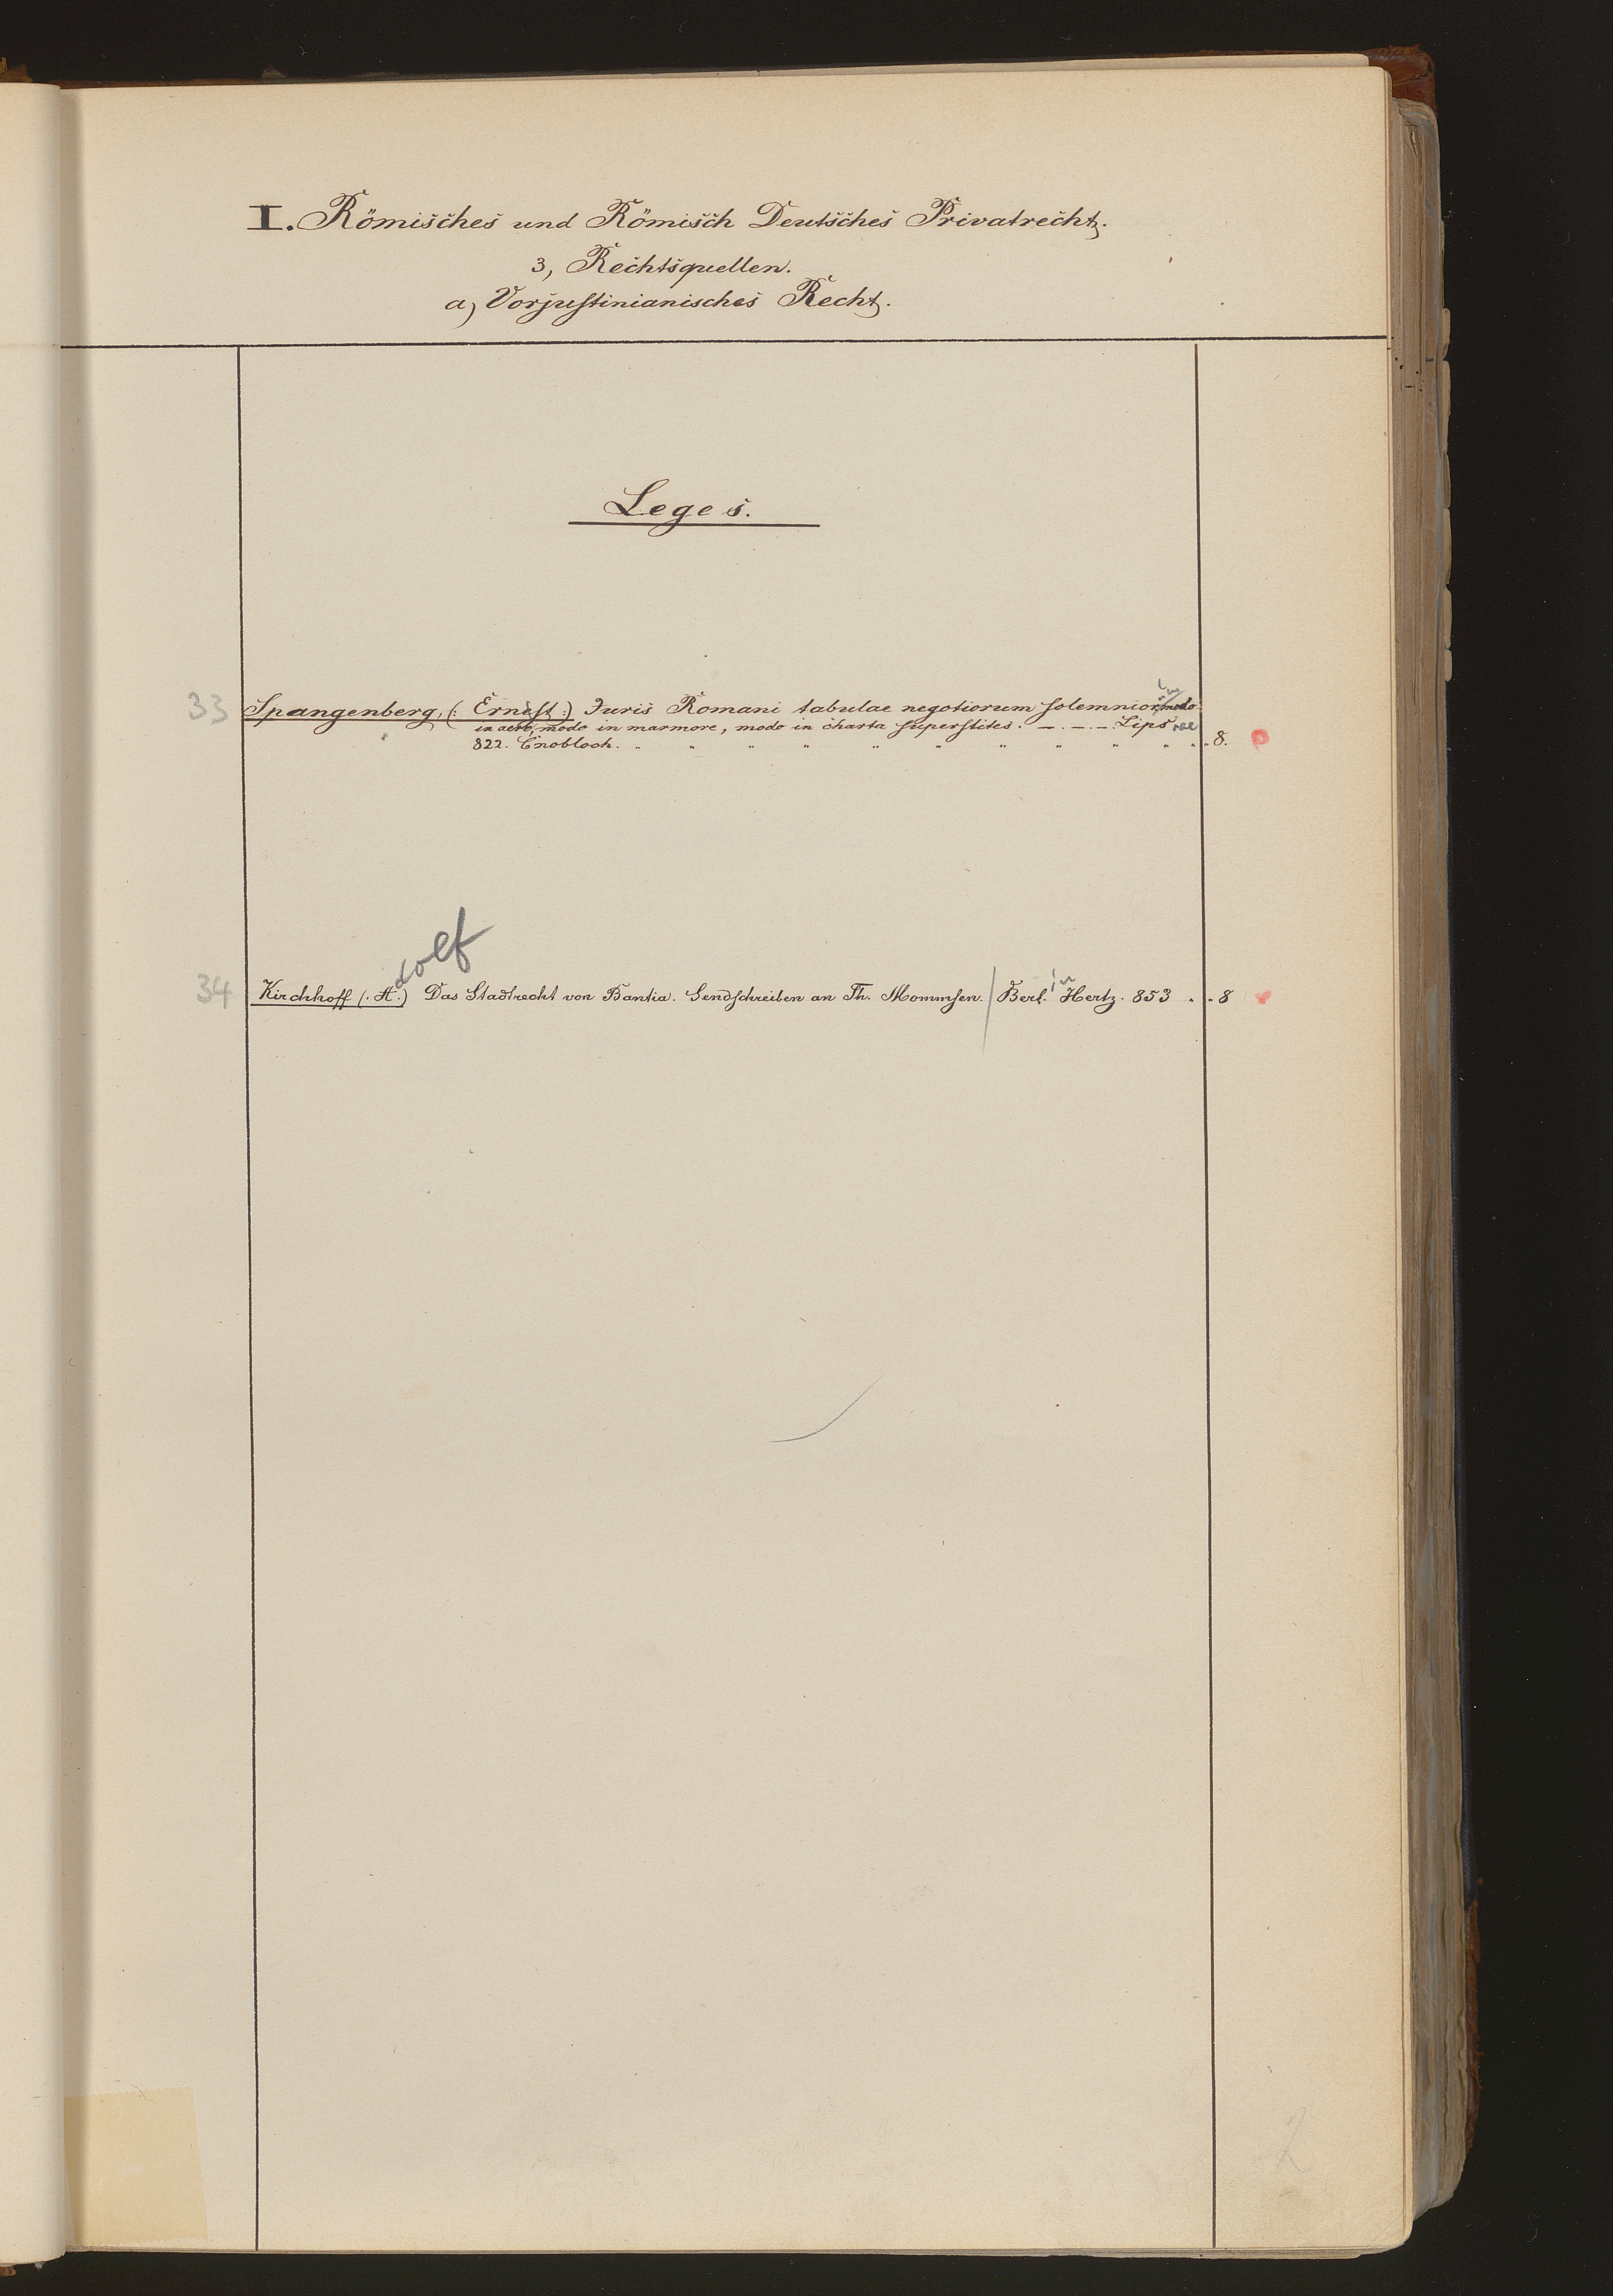 I. Römisches und Römisch Deutsches Privatrecht.
3, Rechtsquellen.
a) Vorjustinianisches Recht.
Leges.
33 Spangenberg, (: Ernest :) Juris Romani tabulae negotiorum solemniorum modo
in aere, modo in marmore, modo in charta superstites. — . — . — . Lipsiae
822. Cnobloch. " " " " " " " " " " " 8.
34 Kirchhoff (. Adolf .) Das Stadtrecht von Bantia. Sendschreiben an Th. Mommsen. / Berlin Hertz. 853 " " 8
2